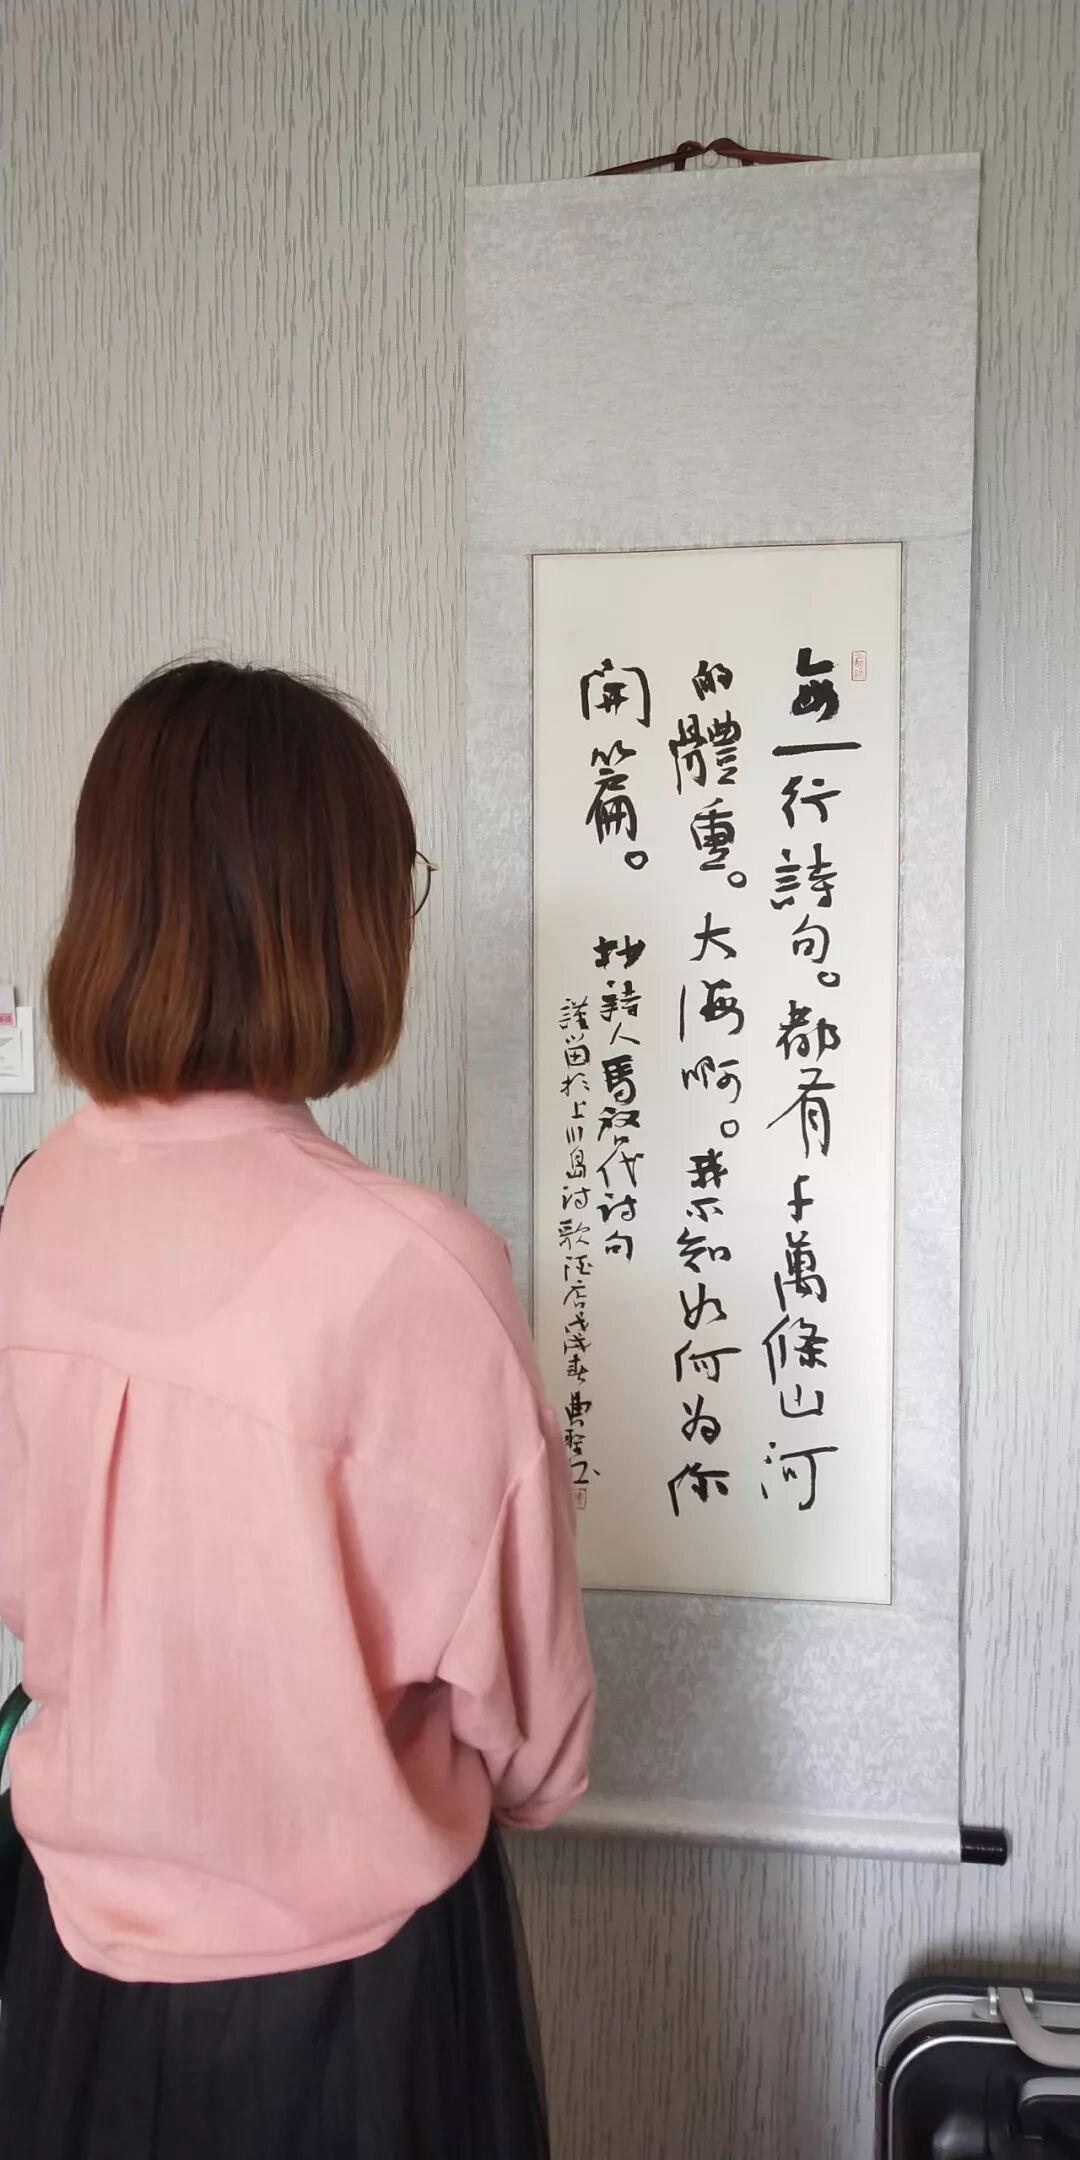 每一行詩句。都有千萬條山河
的體重。大海啊。我不知如何为你
開篇。
抄詩人馬啟代诗句
謹留於上川島诗歌酒店戊戌春